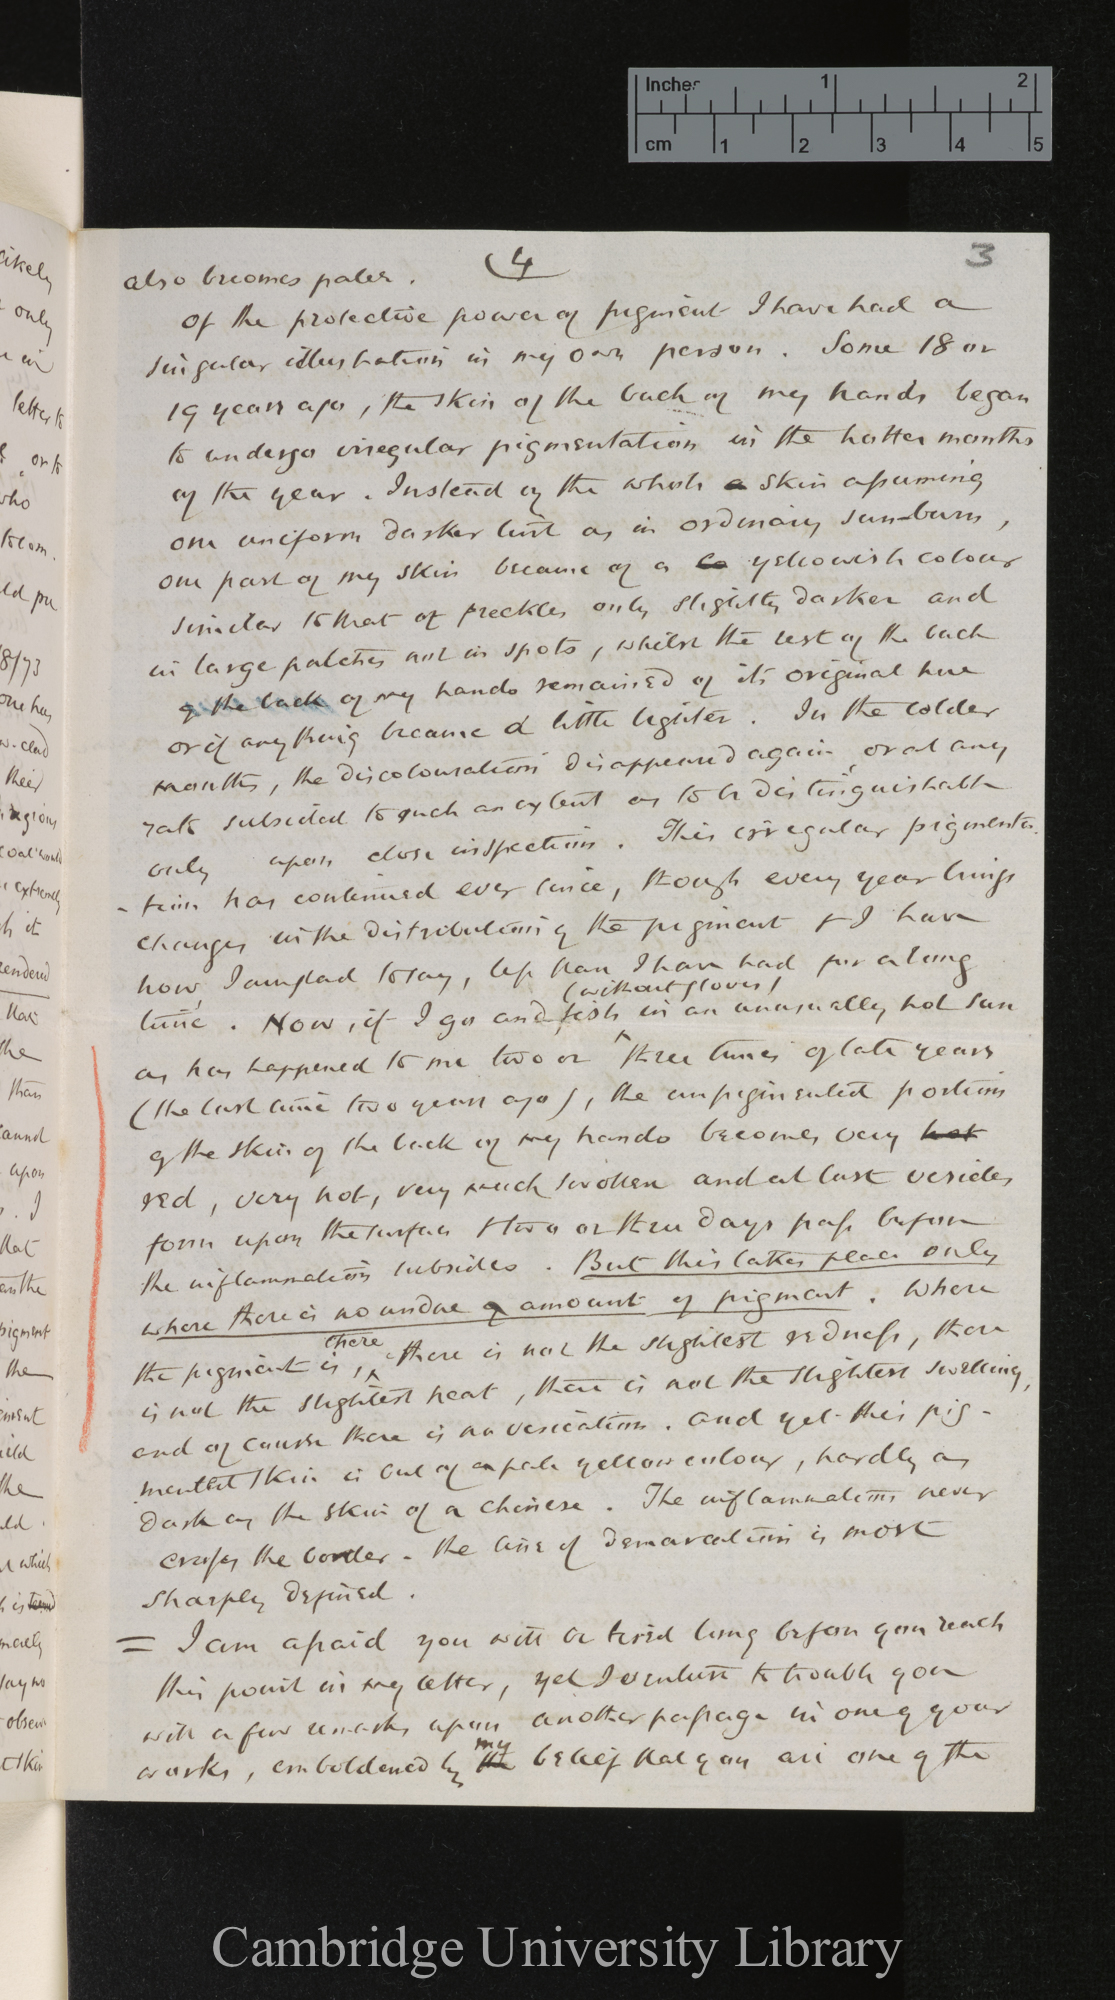 Inches 1 2
cm 1 2 3 4 5
4
3
also becomes paler.
Of the protective power of pigment I have had a
singular illustration in my own person. Some 18 or
19 years ago, the skin of the back of my hands began
to undergo irregular pigmentation in the hotter months
of the year. Instead of the whole a skin assuming
one uniform darker tint as in ordinary sun-burn,
one part of my skin became of a yellowish colour
similar to that of freckles only slightly darker and
in large patches not in spots, whilst the rest of the back
of the back of my hands remained of its original hue
or if anything became a little lighter. In the colder
months, the discolouration disappeared again, or at any
rate subsided to such an extent as to be distinguishable
only upon close inspection. This irregular pigmenta-
-tion has continued ever since, though every year brings
changes in the distribution of the pigment & I have
now, I am glad to say, less than I have had for a long
(without gloves)
time. Now, if I go and fish in an unusually hot sun
as has happened to me two or three times of late years
(the last time two years ago), the unpigmented portions
of the skin of the back of my hands becomes very hot
red, very hot, very much swollen and at last vesicles
form upon the surface & two or three days pass before
the inflammation subsides. But this takes place only
where there is no undue amount of pigment. Where
there
the pigment is, there is not the slightest redness, there
is not the slightest heat, there is not the slightest swelling,
and of course there is no vesication. And yet this pig-
mented skin is but of a pale yellow colour, hardly as
dark as the skin of a Chinese. The inflammation never
crosses the border - the line of demarcation is most
sharply defined.
= I am afraid you will be tired long before you reach
this point in my letter, yet I venture to trouble you
with a few remarks upon another passage in one of your
my
works, emboldened by the belief that you are one of the
Cambridge University Library